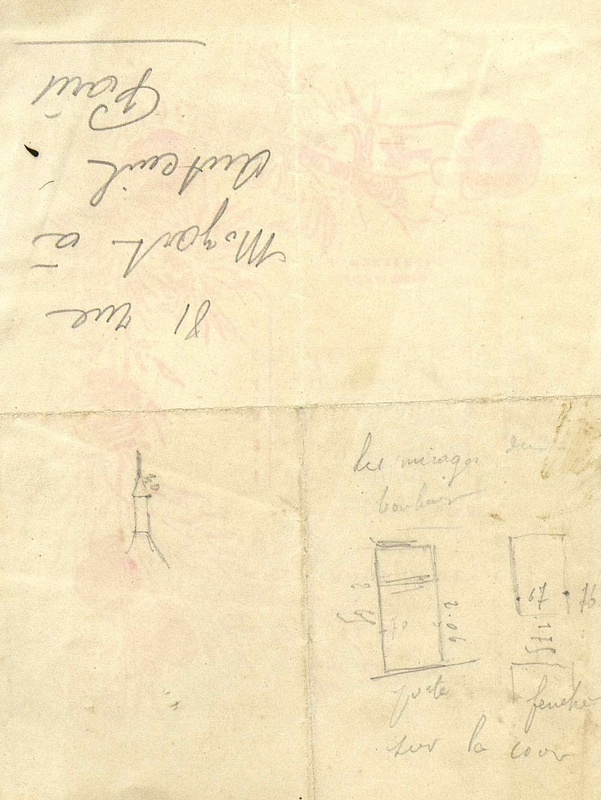 81 rue
Mozart à
Auteuil
Paris
Les mirages du
bonheur
70
2.06
67
76
175
porte
fenêtre
sur la cour